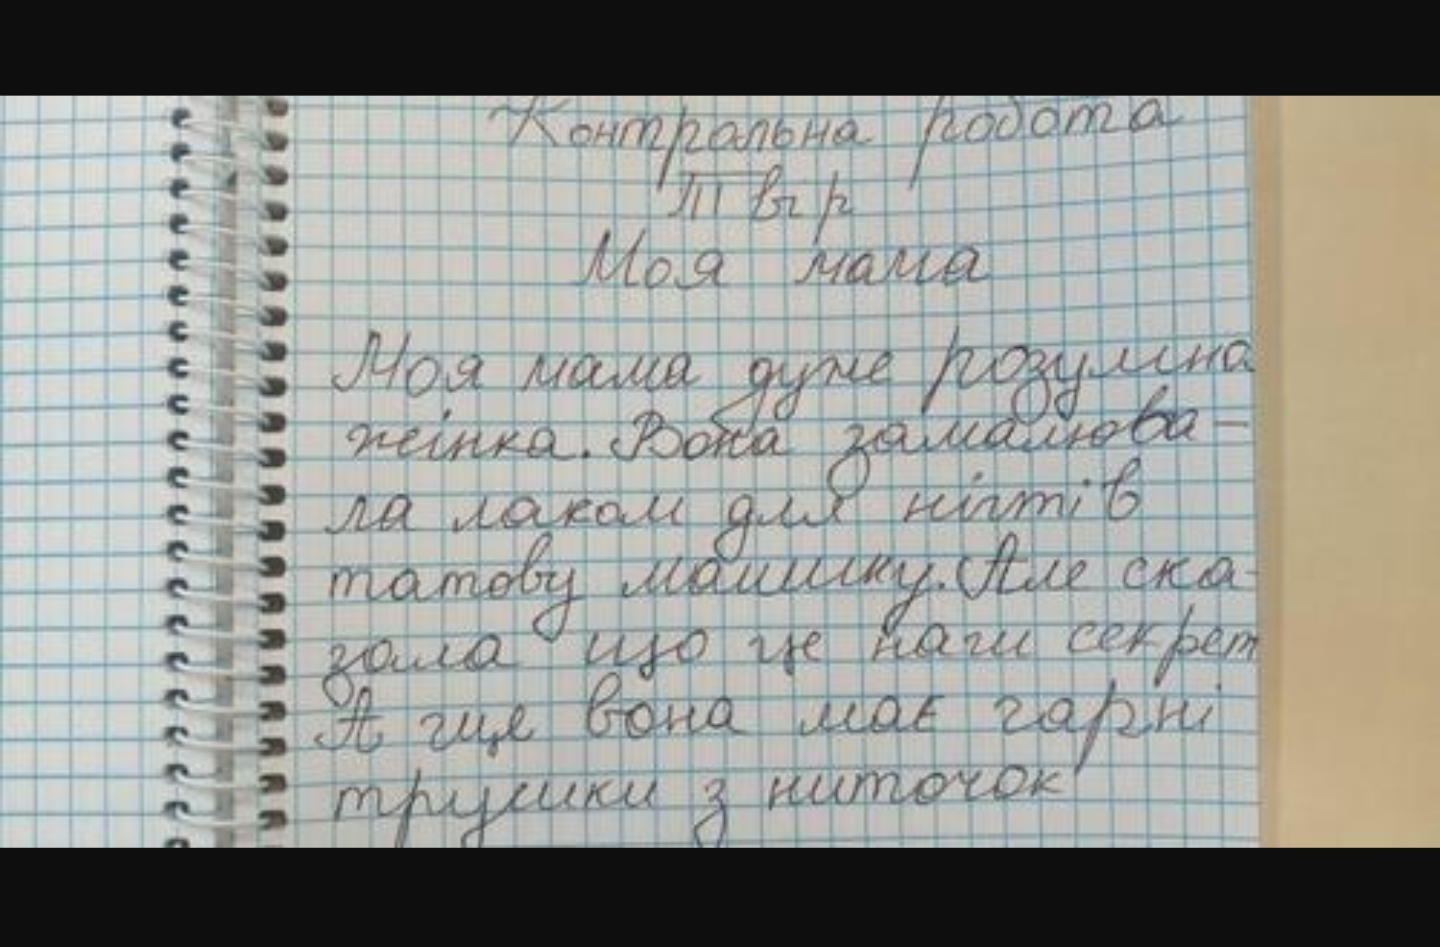 Контрольна робота
Твір
Моя мама
Моя мама дуже розумна
жінка. Вона замалюва-
ла лаком для нігтів
татову машину. Але ска-
зала що це наш секрет
А іще вона має гарні
трушки з ниточок